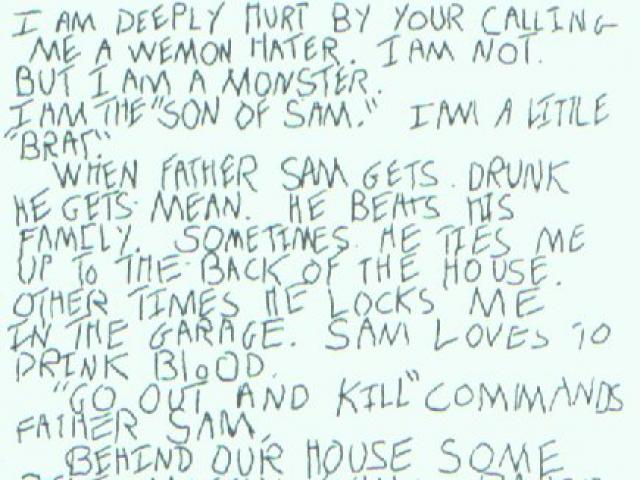 I AM DEEPLY HURT BY YOUR CALLING
ME A WEMON HATER. I AM NOT.
BUT I AM A MONSTER.
I AM THE "SON OF SAM." I AM A LITTLE
"BRAT".
WHEN FATHER SAM GETS DRUNK
HE GETS MEAN. HE BEATS HIS
FAMILY. SOMETIMES HE TIES ME
UP TO THE BACK OF THE HOUSE.
OTHER TIMES HE LOCKS ME
IN THE GARAGE. SAM LOVES TO
DRINK BLOOD.
"GO OUT AND KILL" COMMANDS
FATHER SAM.
BEHIND OUR HOUSE SOME